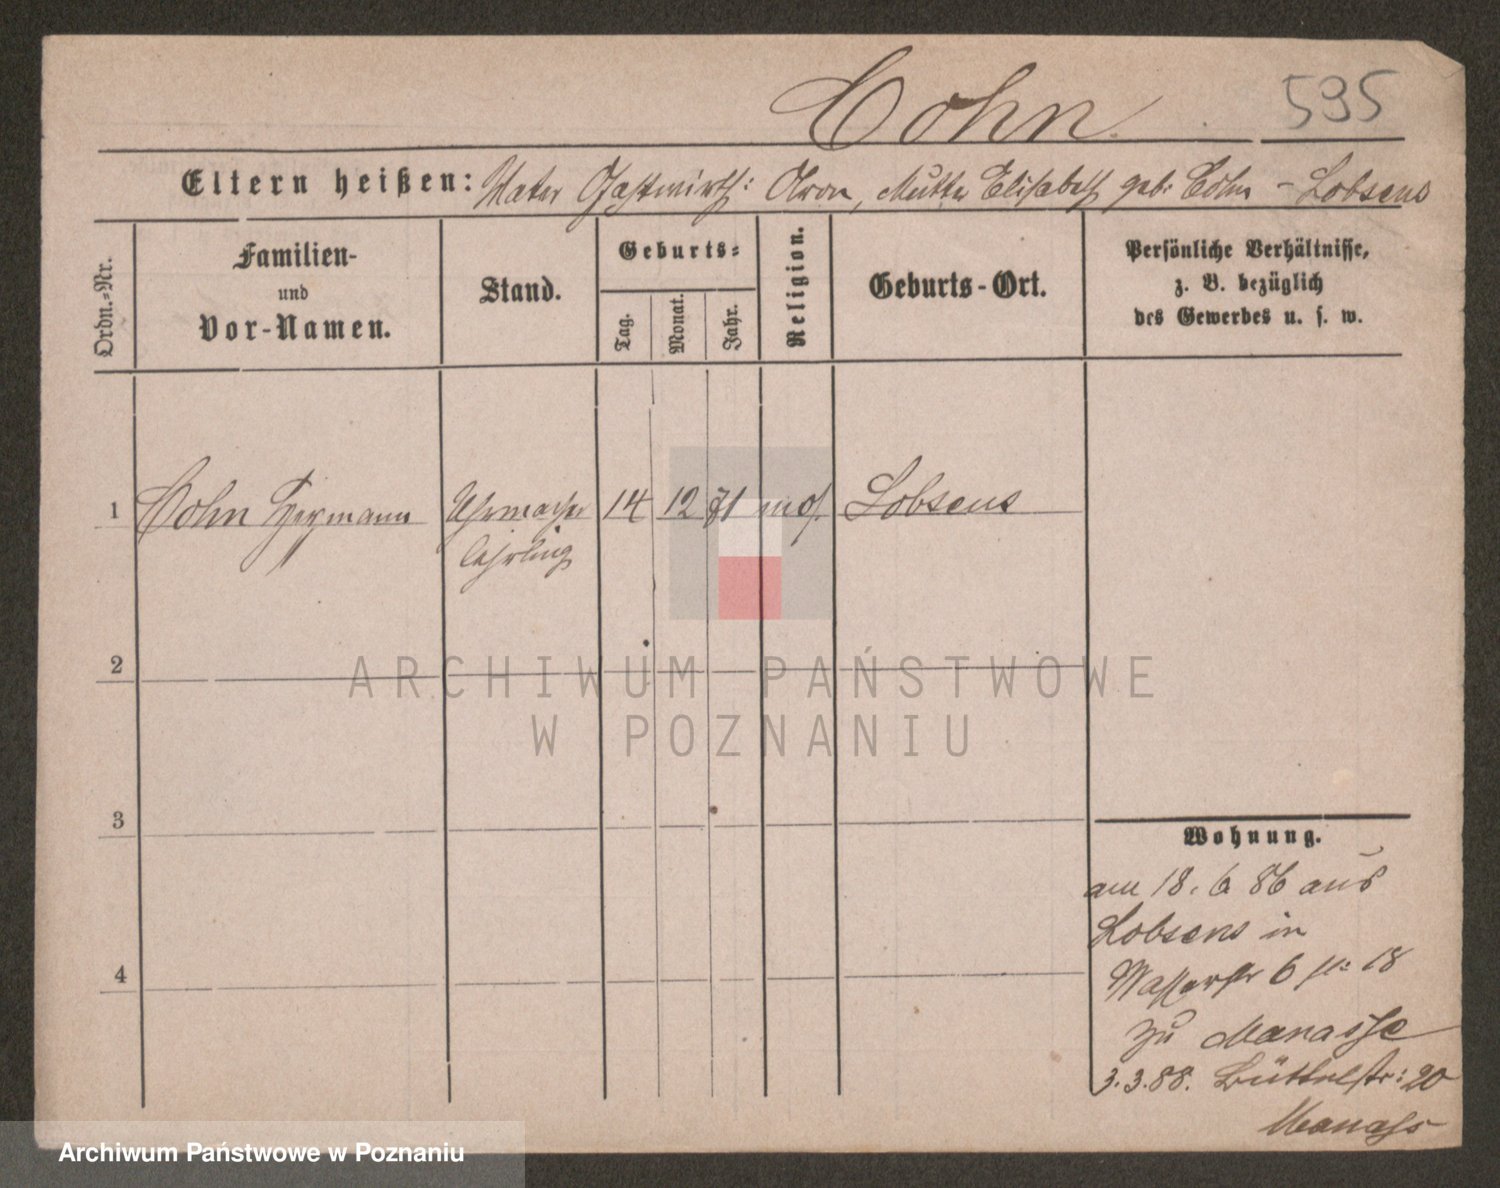 Cohn. 595
Eltern heißen: Vater Gastwirth: Aron, Mutter Elisabeth geb: Cohn - Lobsens
Ordn.=Nr.
Familien-
und
Vor-Namen.
Stand.
Geburts=
Tag.
Monat.
Jahr.
Religion.
Geburts-Ort.
Persönliche Verhältnisse,
z. B. bezüglich
des Gewerbes u. s. w.
1 Cohn Hermann Uhrmacher 14 12 71 mos. Lobsens
lehrling
2
3
4
Wohnung.
am 18. 6 86 aus
Lobsens in
Wasserstr 6 18
zu Manasse
3. 3. 88. Büttelstr: 20
Manass
ARCHIWUM PAŃSTWOWE
W POZNANIU
Archiwum Państwowe w Poznaniu